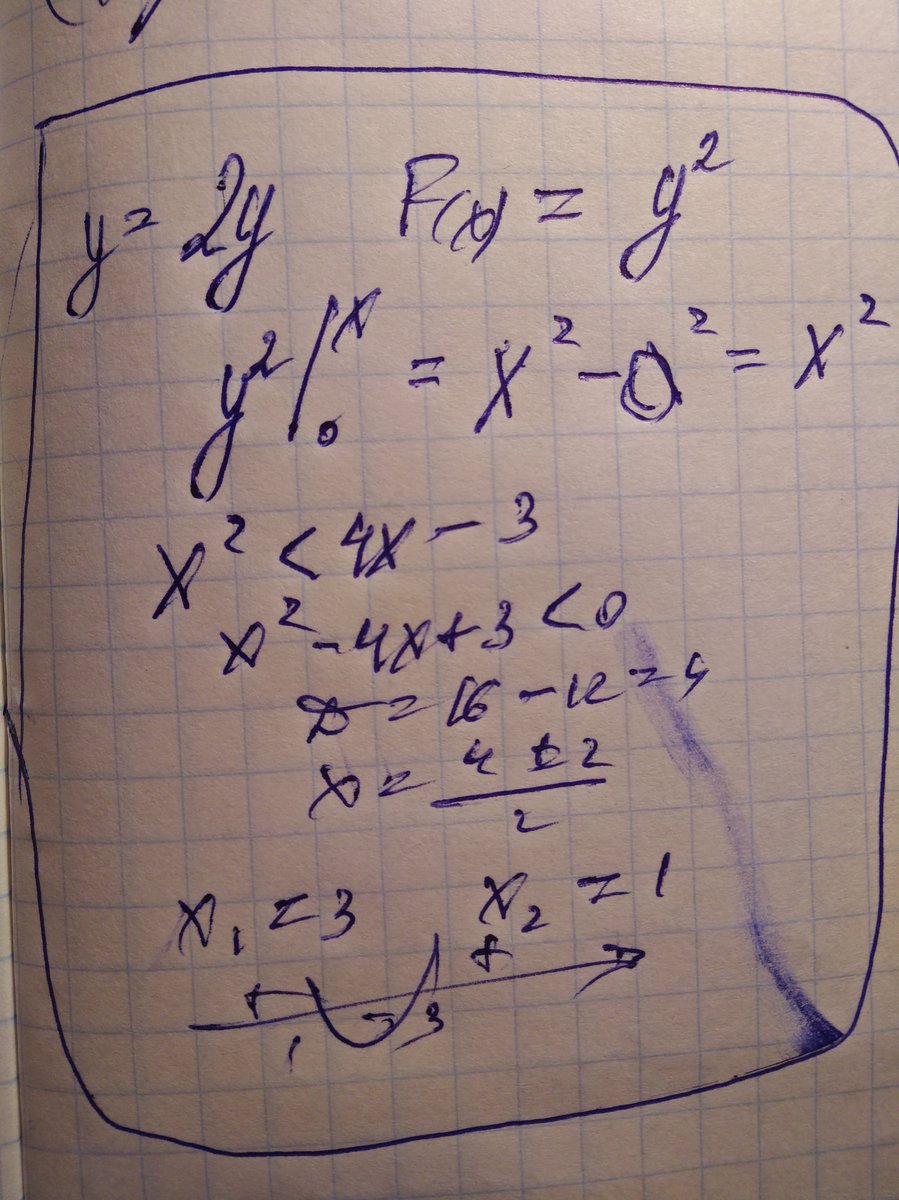 y = 2y F(x) = y²
y² |₀ˣ = x² - 0² = x²
x² < 4x - 3
x² - 4x + 3 < 0
D = 16 - 12 = 4
x = (4 ± 2) / 2
x₁ = 3 x₂ = 1
+ - +
1 3